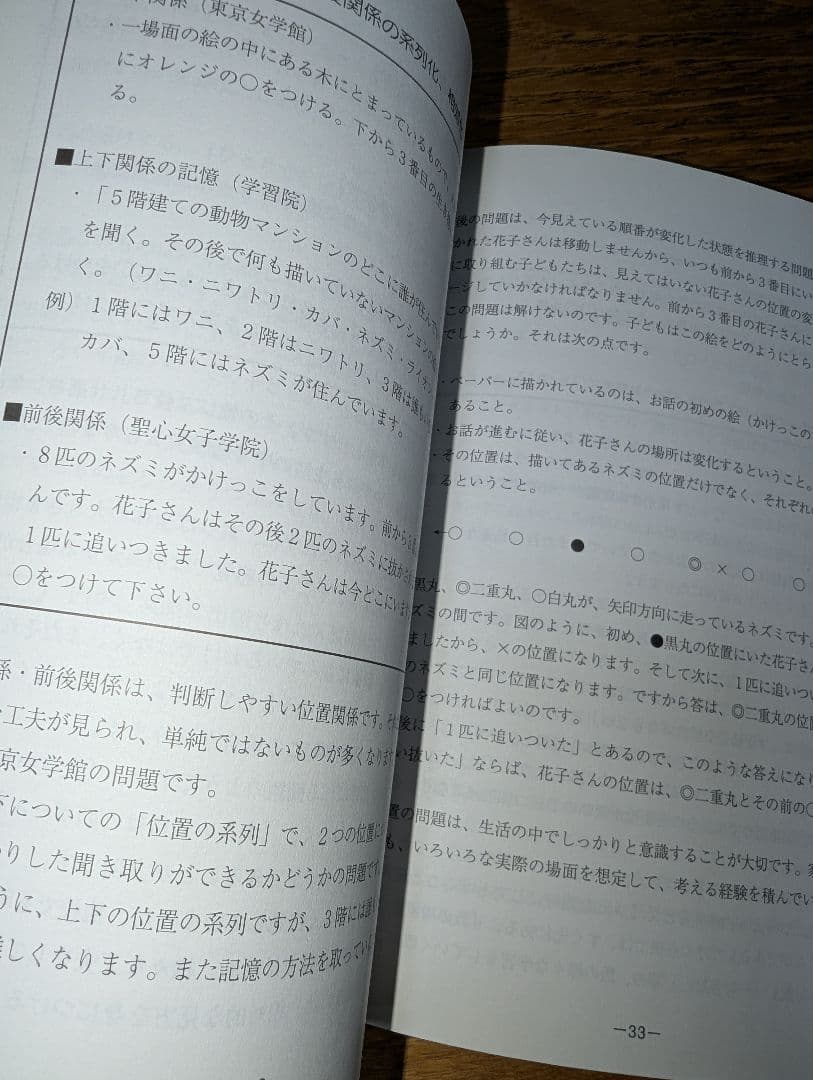 関係（東京女学館）
・一場面の絵の中にある木にとまっているもので、
にオレンジの○をつける。下から３番目の生き
る。
■上下関係の記憶（学習院）
・「５階建ての動物マンションのどこに誰が住んで
を聞く。その後で何も描いていないマンションの
く。（ワニ・ニワトリ・カバ・ネズミ・ライオン
例）１階にはワニ、２階はニワトリ、３階は誰も
カバ、５階にはネズミが住んでいます。
■前後関係（聖心女子学院）
・８匹のネズミがかけっこをしています。前から
んです。花子さんはその後２匹のネズミに抜か
１匹に追いつきました。花子さんは今どこにいま
○をつけて下さい。
係・前後関係は、判断しやすい位置関係です。そ
工夫が見られ、単純ではないものが多くなります
京女学館の問題です。
下についての「位置の系列」で、２つの位置
りした聞き取りができるかどうかの問題です
うに、上下の位置の系列ですが、３階には誰
難しくなります。また記憶の方法を取ってい
後の問題は、今見えている順番が変化した状態を推理する問題
かれた花子さんは移動しませんから、いつも前から３番目にい
に取り組む子どもたちは、見えてはいない花子さんの位置の変
ージしていかなければなりません。前から３番目の花子さんに
この問題は解けないのです。子どもはこの絵をどのようにとら
でしょうか。それは次の点です。
・ペーパーに描かれているのは、お話の初めの絵（かけっこの
あること。
・お話が進むに従い、花子さんの場所は変化するということ。
・その位置は、描いてあるネズミの位置だけでなく、それぞれの
るということ。
←○ ○ ● ○ ◎ × ○ ○
黒丸、◎二重丸、○白丸が、矢印方向に走っているネズミです。
ズミの間です。図のように、初め、●黒丸の位置にいた花子さ
ましたから、×の位置になります。そして次に、１匹に追いつい
のネズミと同じ位置になります。ですから答は、◎二重丸の位置
○をつければよいのです。
後に「１匹に追いついた」とあるので、このような答えになり
い抜いた」ならば、花子さんの位置は、◎二重丸とその前の○
置の問題は、生活の中でしっかりと意識することが大切です。家
も、いろいろな実際の場面を想定して、考える経験を積んでい
―33―